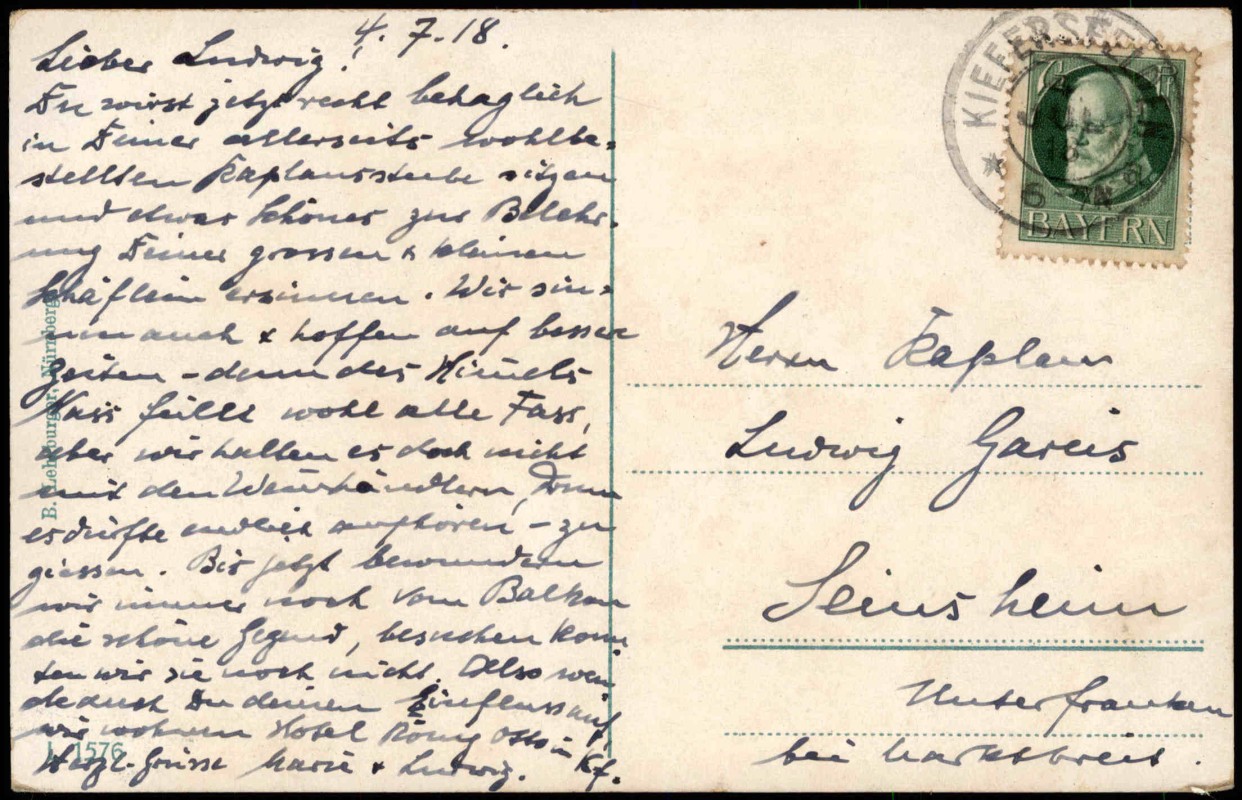 4. 7. 18.
Lieber Ludwig!
Du wirst jetzt recht behaglich
in Deiner allerseits wohlbe-
stellten Kaplansstube sitzen
und etwas Schönes zur Belehr-
ung Deiner grossen & kleinen
Schäflein ersinnen. Wir sin-
nen auch & hoffen auf bessere
Zeiten - denn des Himmels
Nass füllt wohl alle Fass,
aber wir halten es doch nicht
mit den Weinhändlern, Drum
es dürfte endlich aufhören - zu
giessen. Bis jetzt bewundern
wir immer noch vom Balkon
die schöne Gegend, besuchen konn
ten wir sie noch nicht. Also wen
de auch Du deinen Einfluss auf
wir wohnen Hotel König Otto in Kf.
Herzl. Grüsse Marie & Ludwig.
B. Lehrburger, Nürnberg
1576
KIEFERSFELDEN
5 JUL 18
6-7 N
BAYERN
Herrn Kaplan
Ludwig Gareis
Seinsheim
Unterfranken
bei Marktbreit.